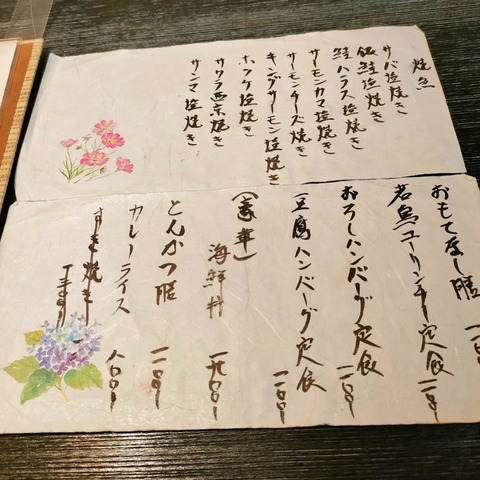 焼魚
サバ塩焼き
銀鮭塩焼き
鮭ハラス塩焼き
サーモンカマ塩焼き
サーモンチーズ焼き
キングサーモン塩焼き
ホッケ塩焼き
サワラ西京焼き
サンマ塩焼き
おもてなし膳 一一〇〇
若鳥ユーリンチー定食 一一〇〇
おろしハンバーグ定食 一一〇〇
豆腐ハンバーグ定食 一一〇〇
(豪華)
海鮮丼 一九〇〇
とんかつ膳 一一〇〇
カレーライス 八〇〇
すき焼き